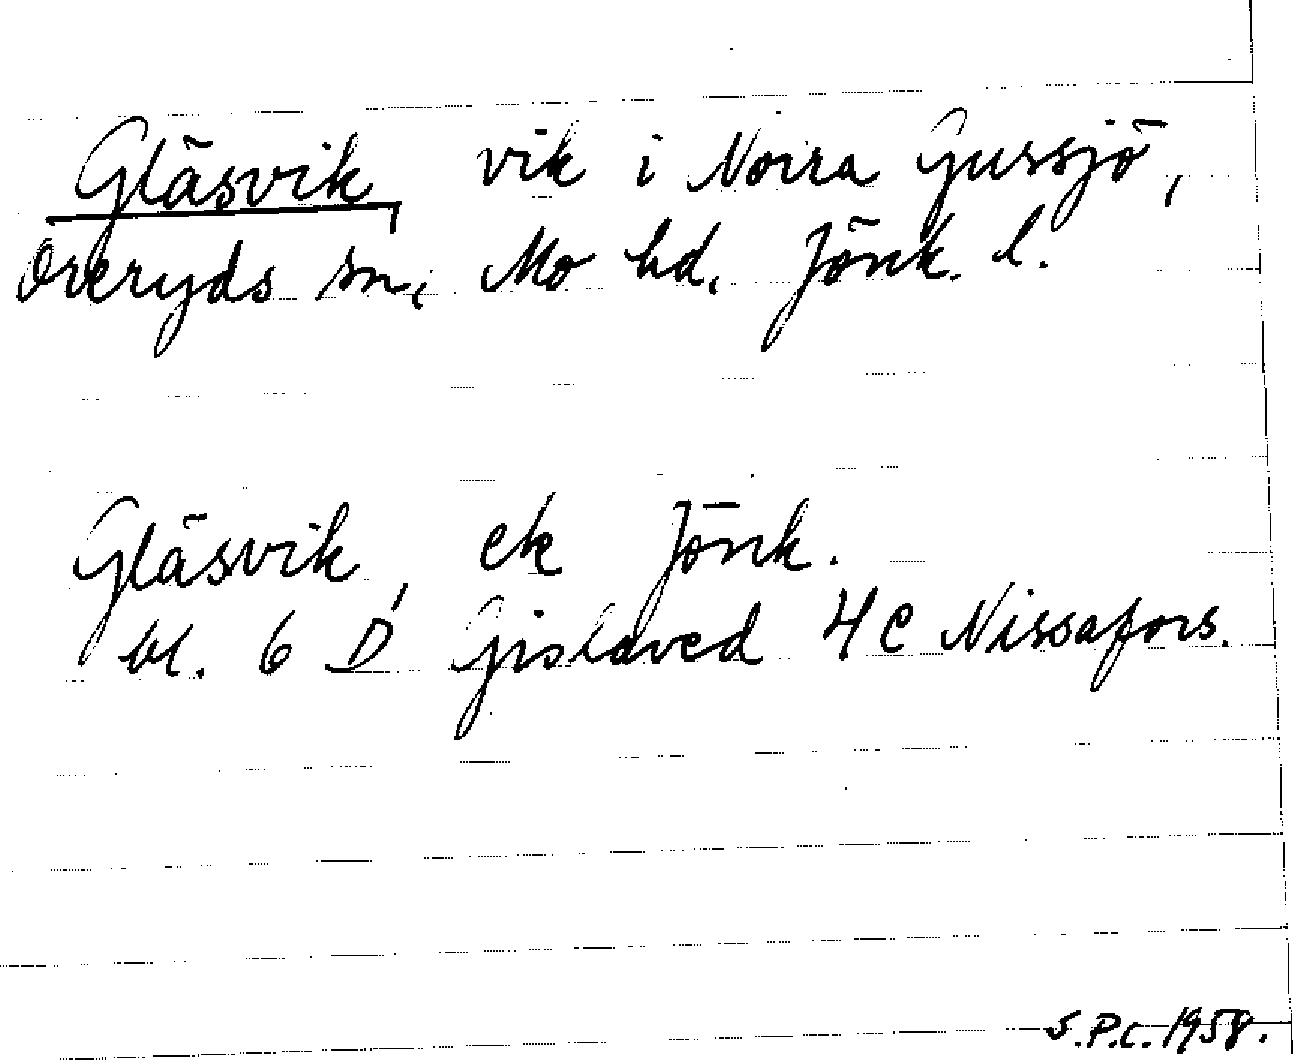 Gläsvik, vik i Norra Gussjö,
Öreryds sn, Mo hd. Jönk. l.
Gläsvik, ek Jönk.
bl. 6 D Gislaved 4 C Nissafors.
S.P.C. 1958.